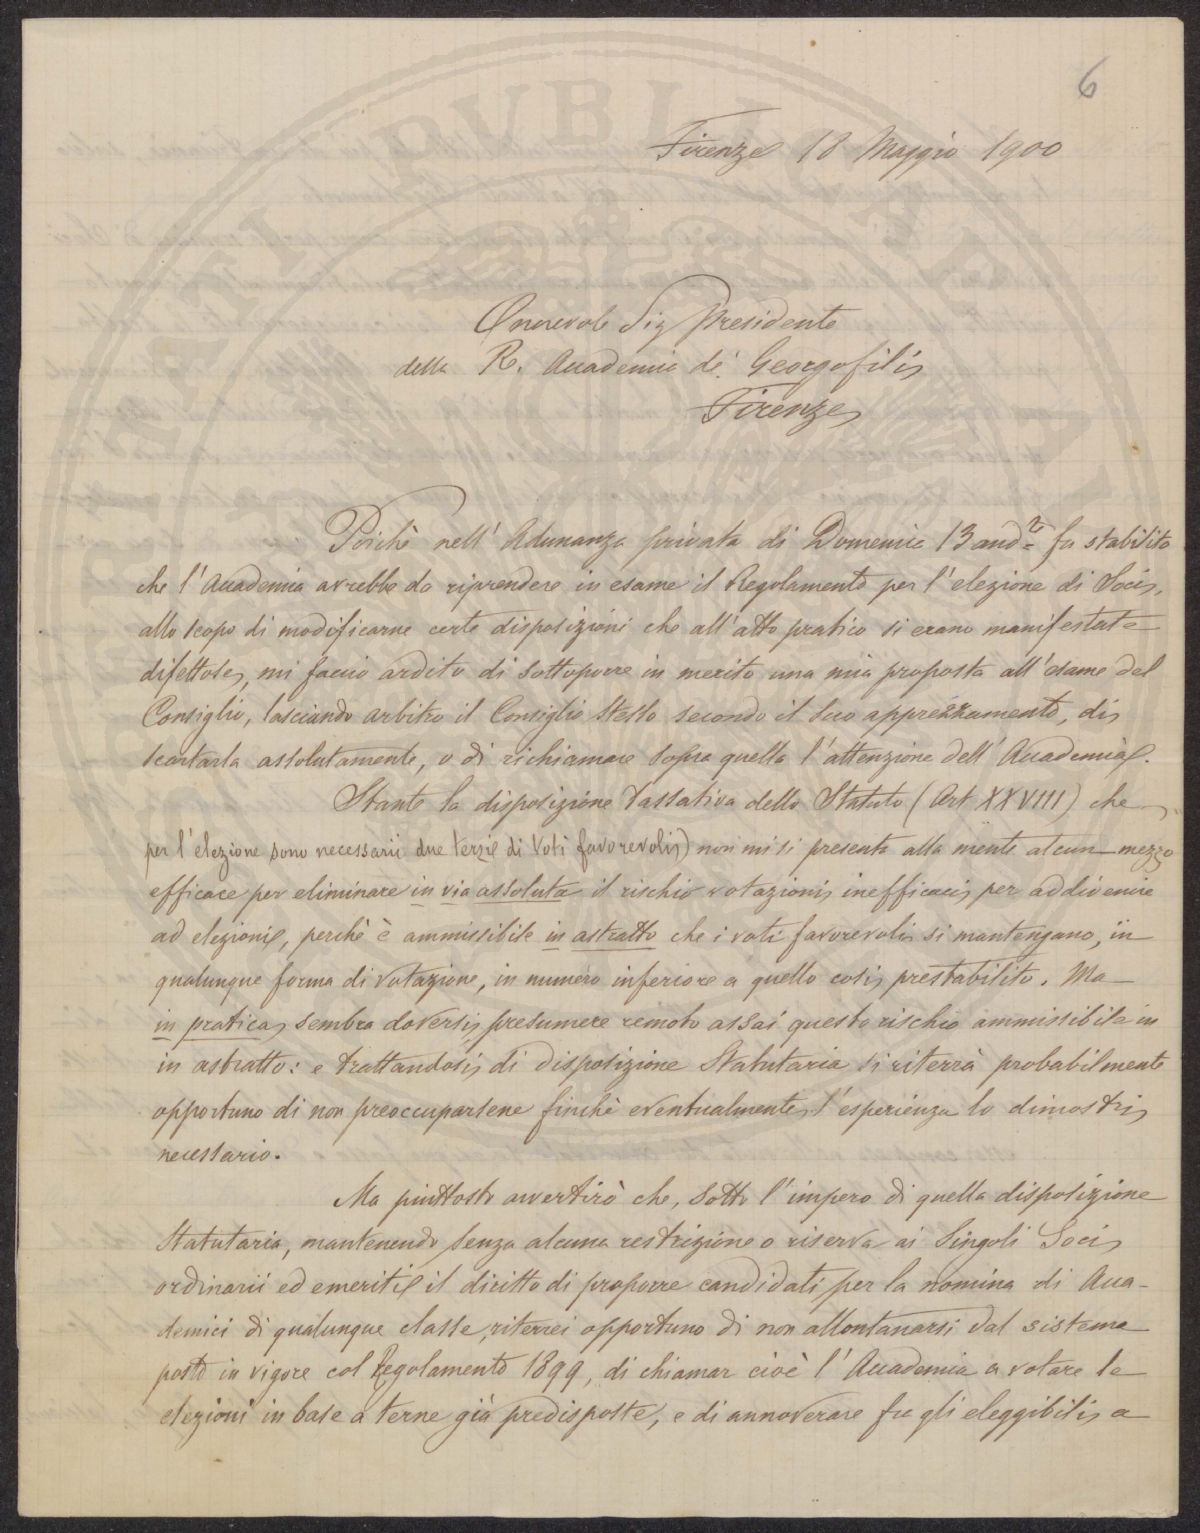 6
Firenze 18 Maggio 1900
Onorevole Sig Presidente
della R. Accademia dé Georgofili
Firenze
Poichè nell' Adunanza privata di Domenica 13 and.e fu stabilito
che l' Accademia avrebbe da riprendere in esame il Regolamento per l' elezione di Soci,
allo scopo di modificarne certe disposizioni che all' atto pratico si erano manifestate
difettose, mi faccio ardito di sottoporre in merito una mia proposta all' esame del
Consiglio, lasciando arbitro il Consiglio stesso secondo il suo apprezzamento, di
scartarla assolutamente, o di richiamare sopra quella l' attenzione dell' Accademia.
Stante la disposizione tassativa dello Statuto (Art XXVIII) che
per l' elezione sono necessarii due terzi di voti favorevoli) non mi si presenta alla mente alcun mezzo
efficace per eliminare in via assoluta il rischio votazioni inefficaci per addivenire
ad elezioni, perchè è ammissibile in astratto che i voti favorevoli si mantengano, in
qualunque forma di votazione, in numero inferiore a quello così prestabilito. Ma
in pratica sembra doversi presumere remoto assai questo rischio ammissibile in
in astratto: e trattandosi di disposizione Statutaria si riterrà probabilmente
opportuno di non preoccuparsene finchè eventualmente l' esperienza lo dimostri
necessario.
Ma piuttosto avvertirò che, sotto l' impero di quella disposizione
Statutaria, mantenendo senza alcuna restrizione o riserva ai singoli Soci
ordinarii ed emeriti il diritto di proporre candidati per la nomina di Acca-
demici di qualunque classe, riterrei opportuno di non allontanarsi dal sistema
posto in vigore col Regolamento 1899, di chiamar cioè l' Accademia a votare le
elezioni in base a terne già predisposte, e di annoverare fra gli eleggibili a